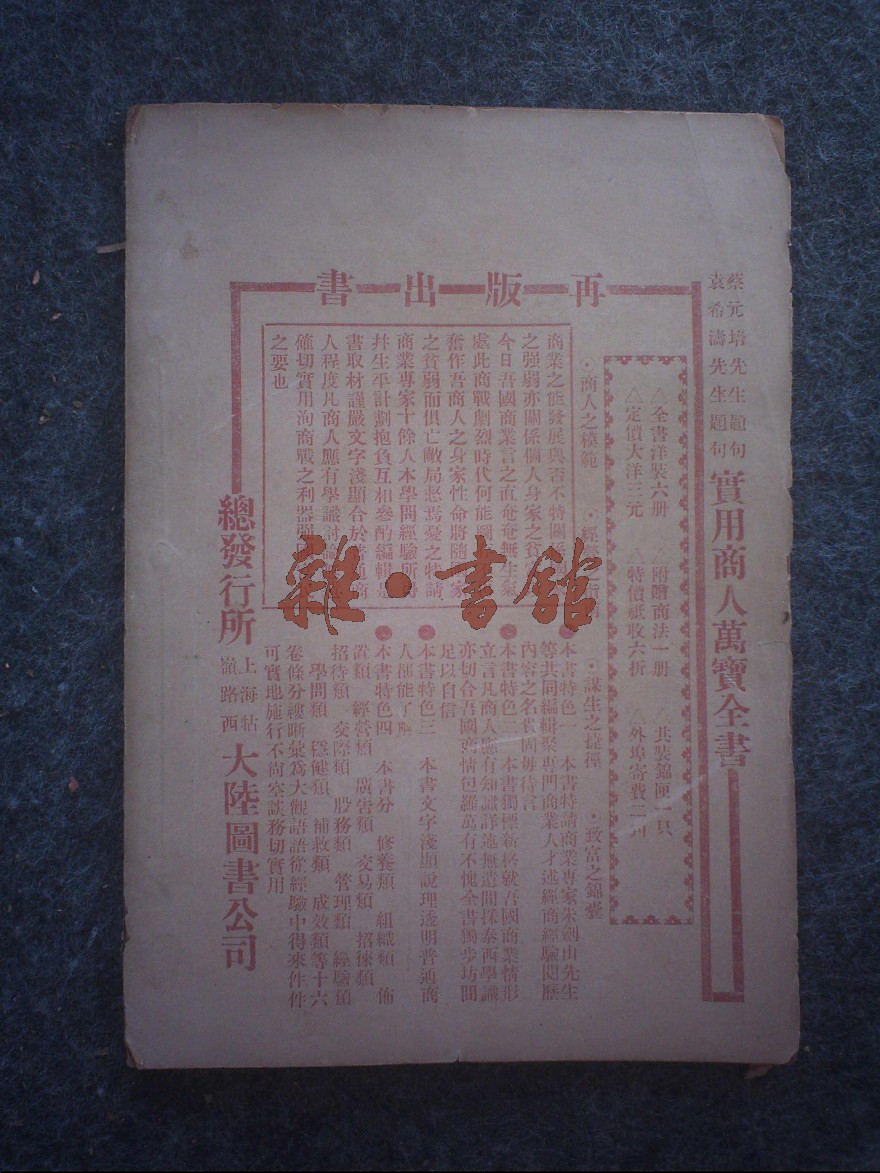 再版出書
蔡元培先生題句
袁希濤先生題句
實用商人萬寶全書
△全書洋裝六册 △附贈商法一册 △共裝錦匣一只
△定價大洋三元 △特價祗收六折 △外埠寄費三
·商人之模範 ·經 ·謀生之捷徑 ·致富之錦囊
商業之能發展與否不特關
之强弱亦關係個人身家之貧
今日吾國商業言之直奄奄無生氣
處此商戰劇烈時代何能圖
奮作吾商人之身家性命將隨
之貧弱而俱亡敝局惄焉憂之特請
商業專家十餘人本學問經驗所
并生平計劃抱負互相參酌編輯
書取材謹嚴文字淺顯合於普通商
人程度凡商人應有學識討
確切實用洵商戰之利器
之要也
●本書特色一 本書特請商業專家朱劍山先生
等共同編輯聚專門商業人才述經商經驗閱歷
內容之名貴固毋待言
●本書特色二 本書獨標新格就吾國商業情形
立言凡商人應有知識詳述無遺間採泰西學識
亦切合吾國商情包羅萬有不愧全書獨步坊間
足以自信
●本書特色三 本書文字淺顯說理透明普通商
人都能了解
●本書特色四 本書分 修養類 組織類 佈
置類 經營類 廣告類 交易類 招徠類
招待類 交際類 股務類 管理類 經驗類
學問類 穩健類 補救類 成效類等十六
卷條分縷晰彙為大觀語語從經驗中得來件件
可實地施行不尚空談務切實用
總發行所 上海牯嶺路西 大陸圖書公司
雜·書館